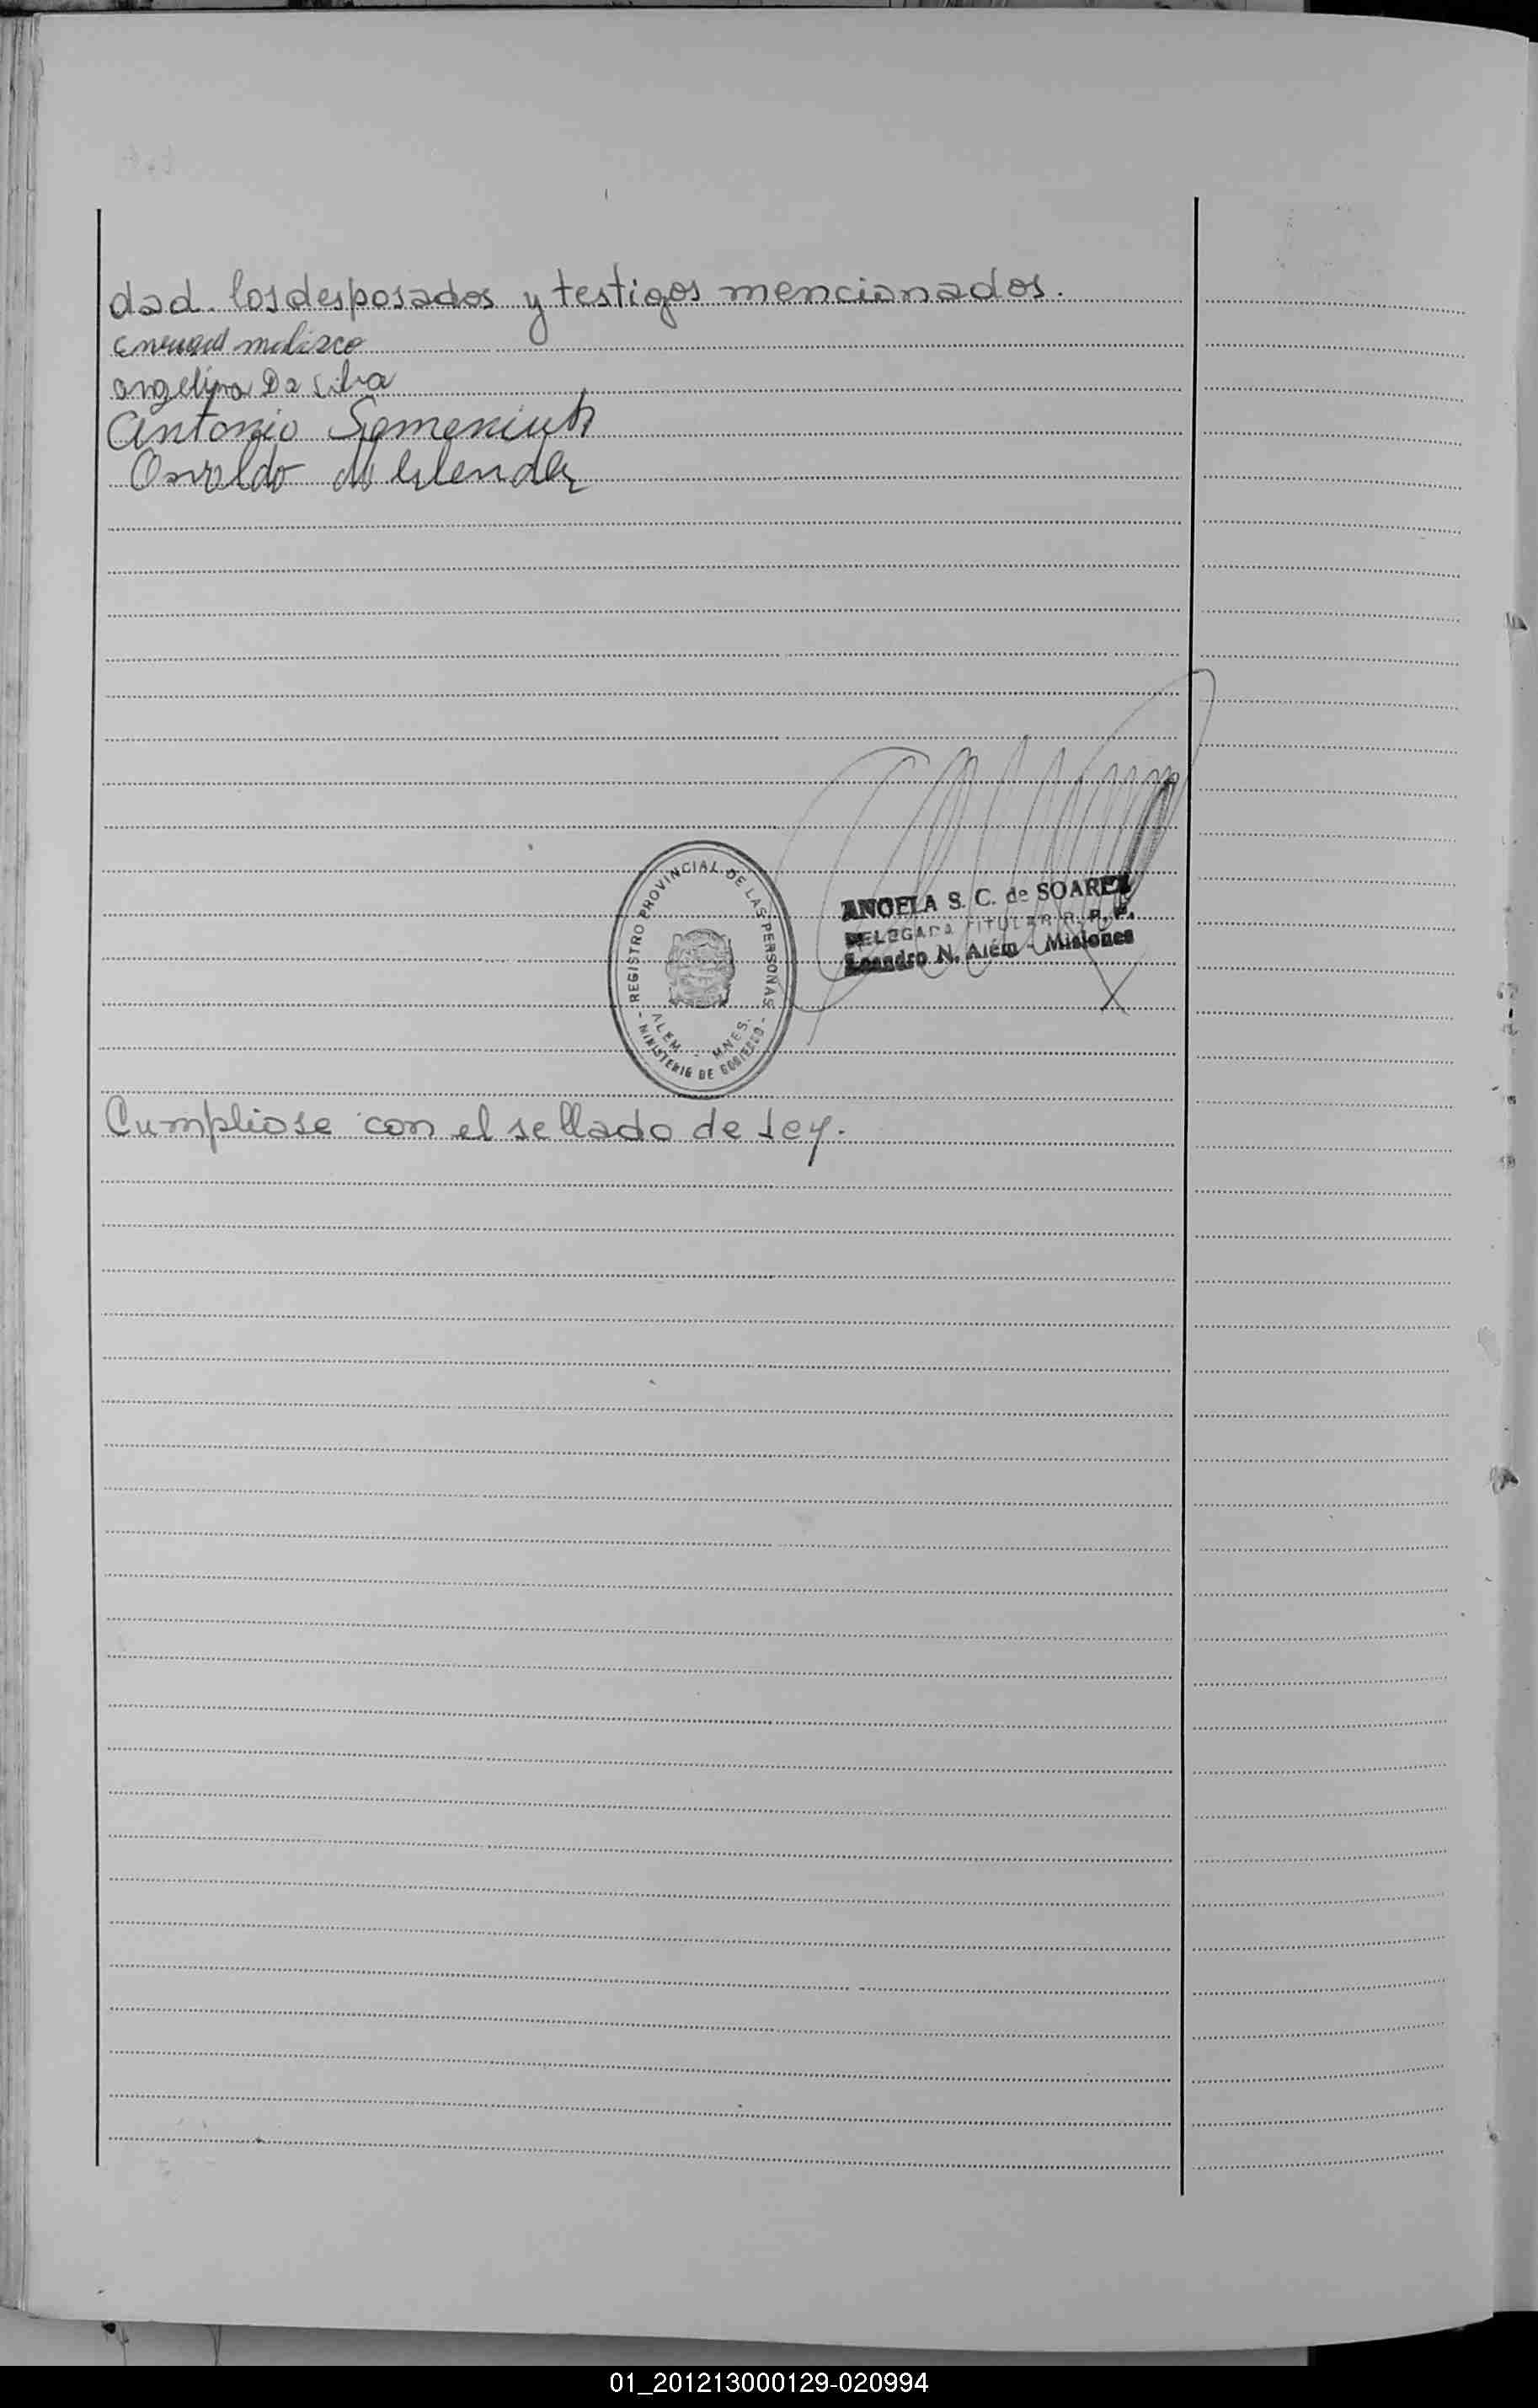 dad. los desposados y testigos mencionados.
angelina Da Silva
Antonio Semeniuk
Osvaldo
REGISTRO PROVINCIAL DE LAS PERSONAS
ALEM - MNES.
- MINISTERIO DE GOBIERNO -
ANGELA S. C. de SOAREZ
DELEGADA TITULAR R. P. P.
Leandro N. Alem - Misiones
Cumpliose con el sellado de Ley.
01_201213000129-020994